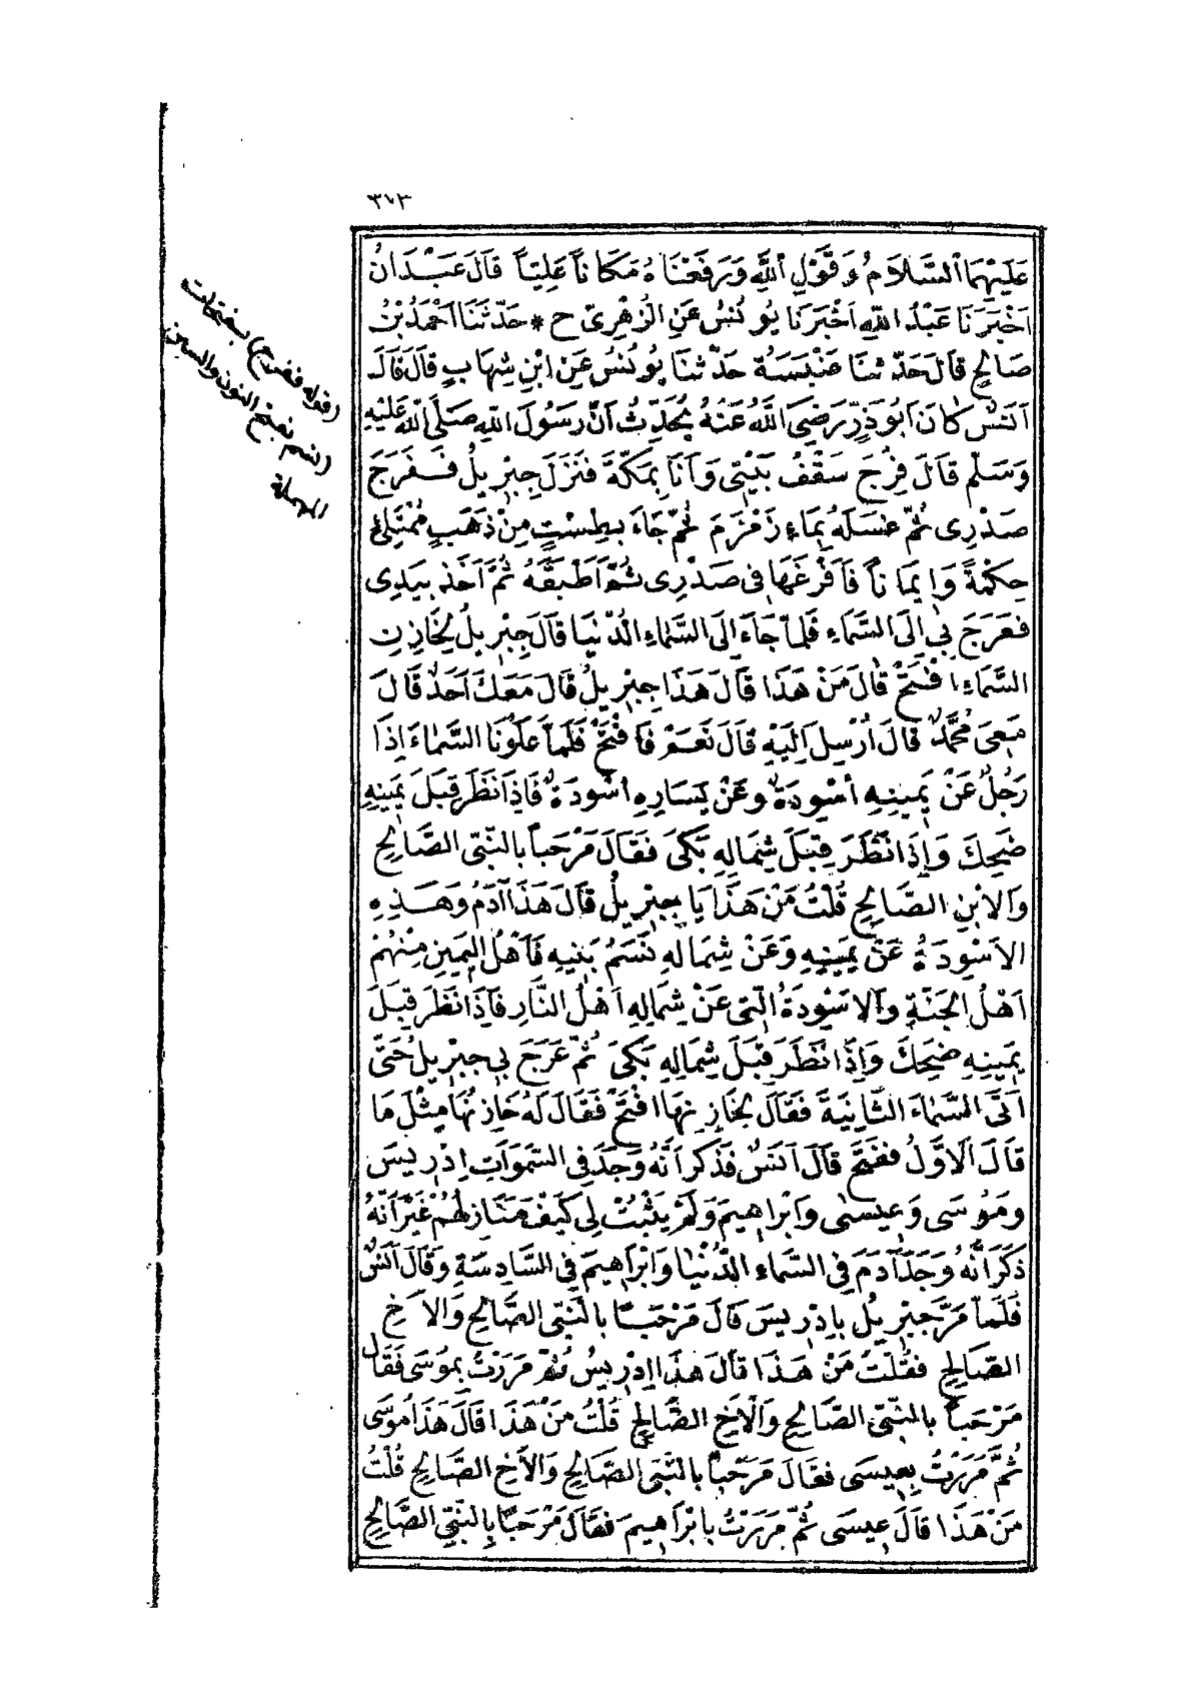 ٣٧٣
عَلَيْهِمَا السَّلَامُ وَقَوْلِ اللَّهِ وَرَفَعْنَاهُ مَكَانًا عَلِيًّا قَالَ عَبْدَانُ
اَخْبَرَنَا عَبْدُ اللَّهِ اَخْبَرَنَا يُونُسُ عَنِ الزُّهْرِىِّ ح * حَدَّثَنَا اَحْمَدُ بْنُ
صَالِحٍ قَالَ حَدَّثَنَا عَنْبَسَةُ حَدَّثَنَا يُونُسُ عَنِ ابْنِ شِهَابٍ قَالَ قَالَ
اَنَسٌ كَانَ اَبُو ذَرٍّ رَضِىَ اللَّهُ عَنْهُ يُحَدِّثُ اَنَّ رَسُولَ اللَّهِ صَلَّى اللَّهُ عَلَيْهِ
وَسَلَّمَ قَالَ فُرِجَ سَقْفُ بَيْتِى وَاَنَا بِمَكَّةَ فَنَزَلَ جِبْرِيلُ فَفَرَجَ
صَدْرِى ثُمَّ غَسَلَهُ بِمَاءِ زَمْزَمَ ثُمَّ جَاءَ بِطَسْتٍ مِنْ ذَهَبٍ مُمْتَلِئٍ
حِكْمَةً وَاِيمَانًا فَاَفْرَغَهَا فِى صَدْرِى ثُمَّ اَطْبَقَهُ ثُمَّ اَخَذَ بِيَدِى
فَعَرَجَ بِى اِلَى السَّمَاءِ فَلَمَّا جَاءَ اِلَى السَّمَاءِ الدُّنْيَا قَالَ جِبْرِيلُ لِخَازِنِ
السَّمَاءِ افْتَحْ قَالَ مَنْ هَذَا قَالَ هَذَا جِبْرِيلُ قَالَ مَعَكَ اَحَدٌ قَالَ
مَعِىَ مُحَمَّدٌ قَالَ اُرْسِلَ اِلَيْهِ قَالَ نَعَمْ فَافْتَحْ فَلَمَّا عَلَوْنَا السَّمَاءَ اِذَا
رَجُلٌ عَنْ يَمِينِهِ اَسْوِدَةٌ وَعَنْ يَسَارِهِ اَسْوِدَةٌ فَاِذَا نَظَرَ قِبَلَ يَمِينِهِ
ضَحِكَ وَاِذَا نَظَرَ قِبَلَ شِمَالِهِ بَكَى فَقَالَ مَرْحَبًا بِالنَّبِىِّ الصَّالِحِ
وَالاِبْنِ الصَّالِحِ قُلْتُ مَنْ هَذَا يَا جِبْرِيلُ قَالَ هَذَا آدَمُ وَهَذِهِ
الاَسْوِدَةُ عَنْ يَمِينِهِ وَعَنْ شِمَالِهِ نَسَمُ بَنِيهِ فَاَهْلُ الْيَمِينِ مِنْهُمْ
اَهْلُ الْجَنَّةِ وَالاَسْوِدَةُ الَّتِى عَنْ شِمَالِهِ اَهْلُ النَّارِ فَاِذَا نَظَرَ قِبَلَ
يَمِينِهِ ضَحِكَ وَاِذَا نَظَرَ قِبَلَ شِمَالِهِ بَكَى ثُمَّ عَرَجَ بِى جِبْرِيلُ حَتَّى
اَتَى السَّمَاءَ الثَّانِيَةَ فَقَالَ لِخَازِنِهَا افْتَحْ فَقَالَ لَهُ خَازِنُهَا مِثْلَ مَا
قَالَ الاَوَّلُ فَفَتَحَ قَالَ اَنَسٌ فَذَكَرَ اَنَّهُ وَجَدَ فِى السَّمَوَاتِ اِدْرِيسَ
وَمُوسَى وَعِيسَى وَاِبْرَاهِيمَ وَلَمْ يُثْبِتْ لِى كَيْفَ مَنَازِلُهُمْ غَيْرَ اَنَّهُ
ذَكَرَ اَنَّهُ وَجَدَ آدَمَ فِى السَّمَاءِ الدُّنْيَا وَاِبْرَاهِيمَ فِى السَّادِسَةِ وَقَالَ اَنَسٌ
فَلَمَّا مَرَّ جِبْرِيلُ بِاِدْرِيسَ قَالَ مَرْحَبًا بِالنَّبِىِّ الصَّالِحِ وَالاَخِ
الصَّالِحِ فَقُلْتُ مَنْ هَذَا قَالَ هَذَا اِدْرِيسُ ثُمَّ مَرَرْتُ بِمُوسَى فَقَالَ
مَرْحَبًا بِالنَّبِىِّ الصَّالِحِ وَالاَخِ الصَّالِحِ قُلْتُ مَنْ هَذَا قَالَ هَذَا مُوسَى
ثُمَّ مَرَرْتُ بِعِيسَى فَقَالَ مَرْحَبًا بِالنَّبِىِّ الصَّالِحِ وَالاَخِ الصَّالِحِ قُلْتُ
مَنْ هَذَا قَالَ عِيسَى ثُمَّ مَرَرْتُ بِاِبْرَاهِيمَ فَقَالَ مَرْحَبًا بِالنَّبِىِّ الصَّالِحِ
(قوله ففرج) بفتحات
(نسم) بفتح النون والسين
المهملة